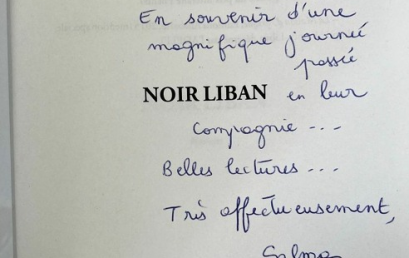 En souvenir d'une
magnifique journée
passée
NOIR LIBAN en leur
Compagnie ...
Belles lectures ...
Très affectueusement,
Salma